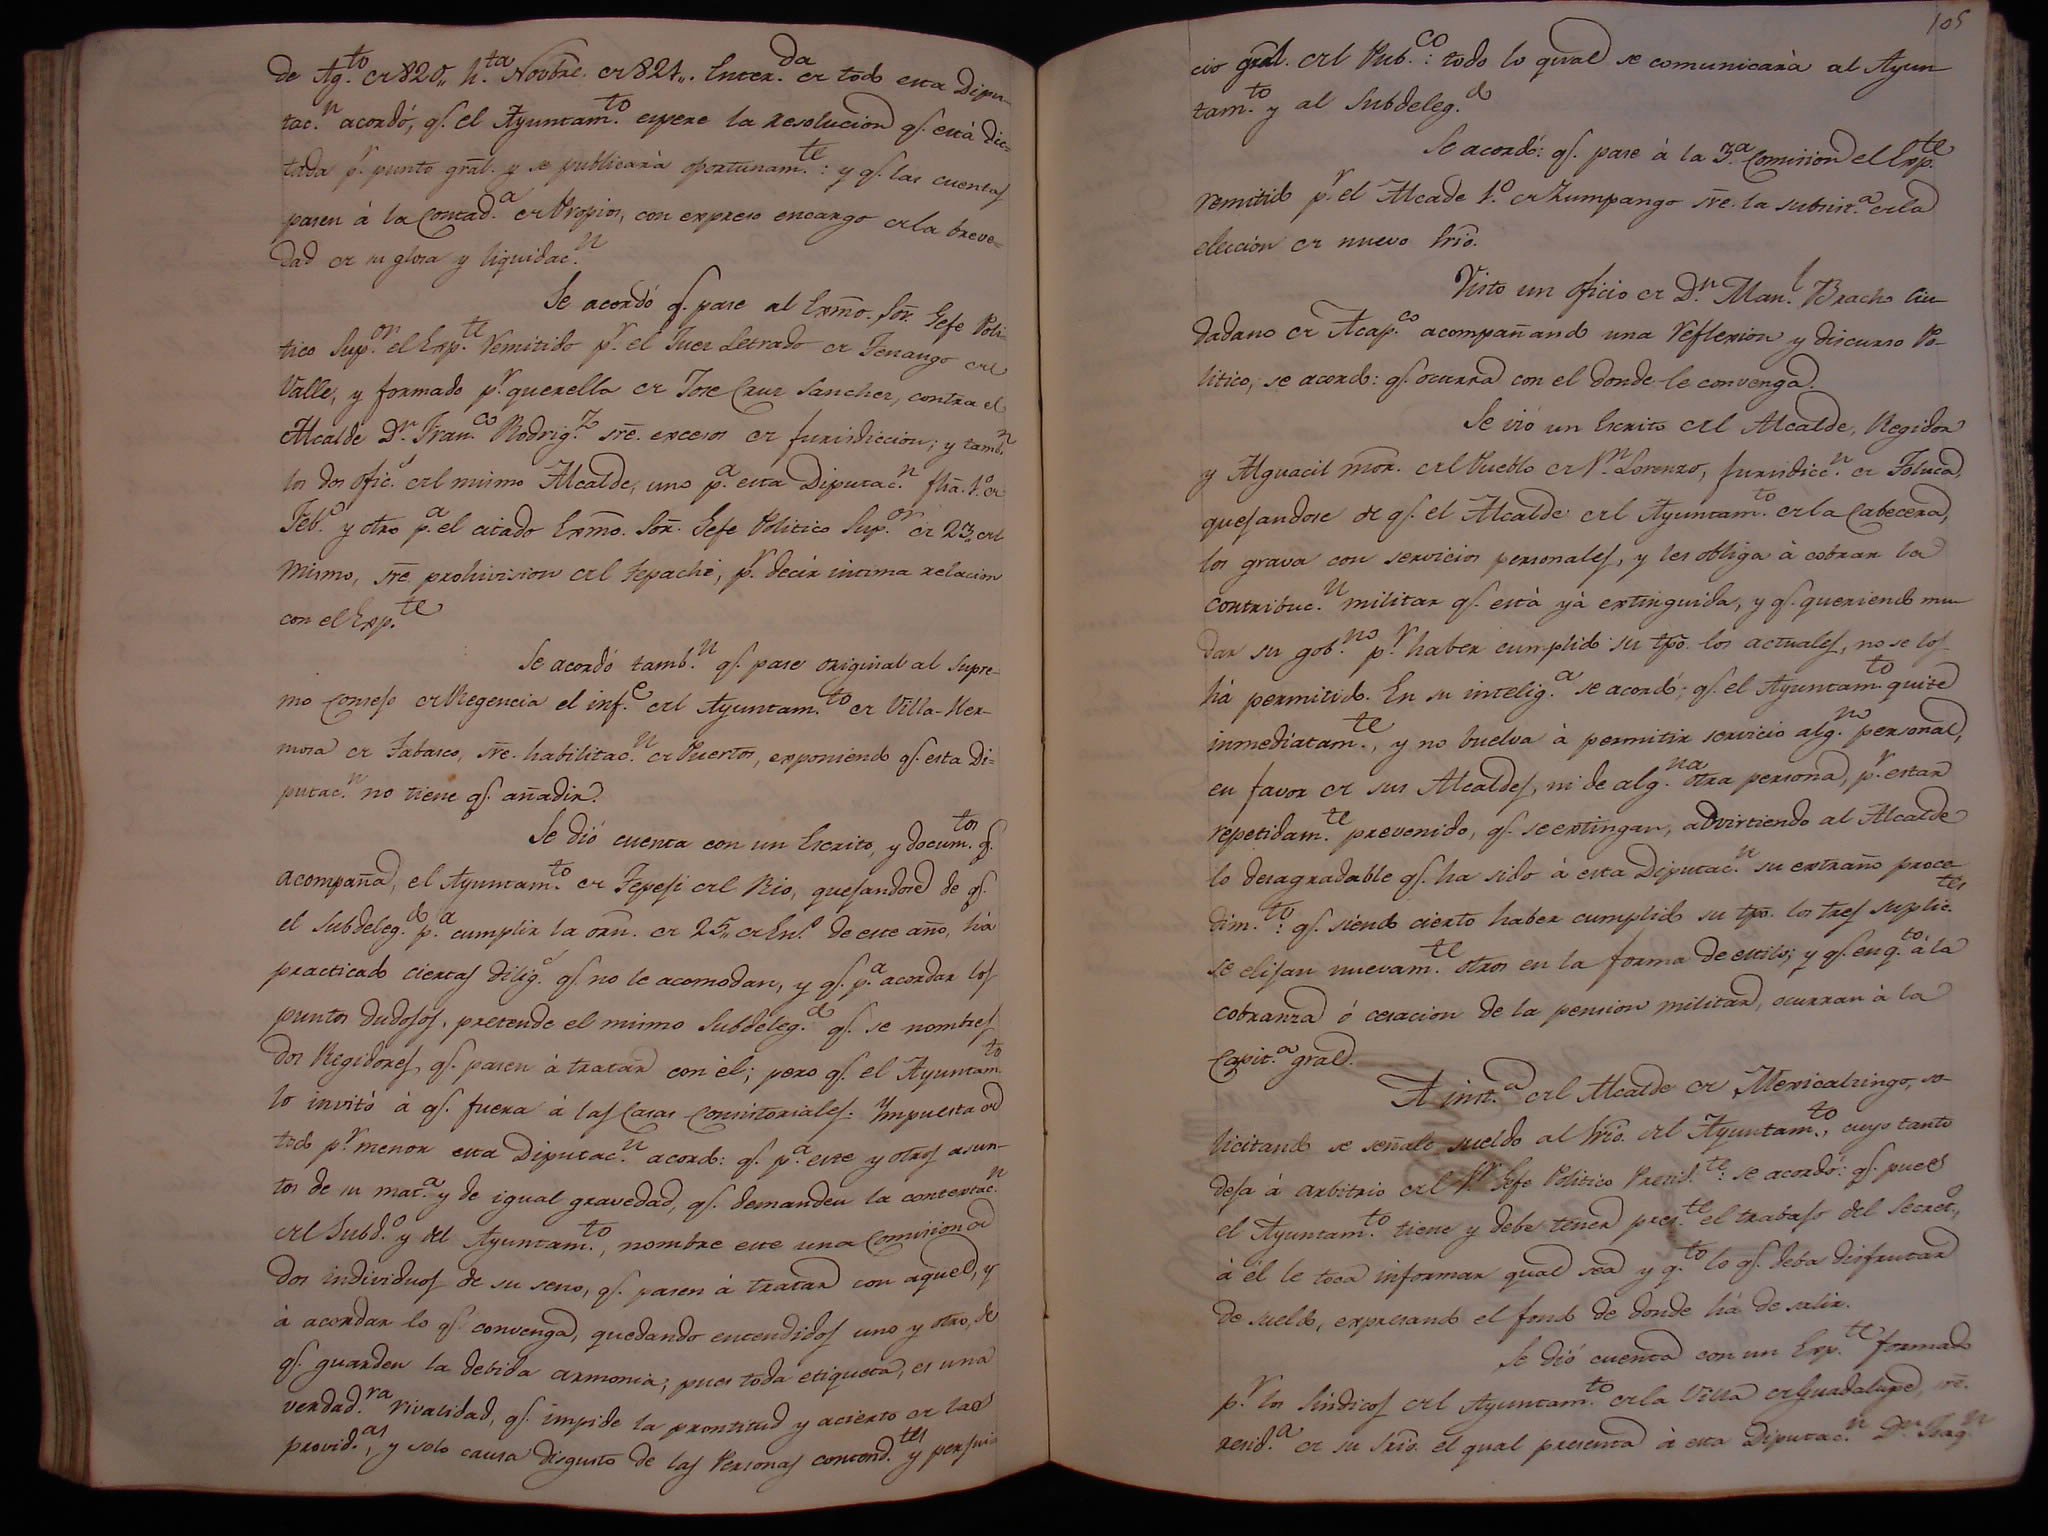 de Ag.to de 820,, h.ta Novbre. de 821,,. Enter.da de todo esta Dipu-
tac.n acordó, q.e el Ayuntam.to espere la resolucion q.e está dic-
tada p.r punto gral. y se publicará oportunam.te: y q.e las cuentas
pasen á la Contad.a de Propios, con expreso encargo de la breve-
dad de su glosa y liquidac.n
Se acordó q.e pase al Exmo. Sor. Gefe Poli-
tico Sup.or el Exp.te remitido p.r el Juez Letrado de Tenango del
Valle, y formado p.r querella de Jose Cruz Sanchez, contra el
Alcalde D.n Fran.co Rodrig.z sre. excesos de jurisdiccion; y tamb.n
los dos ofic.s del mismo Alcalde, uno p.a esta Diputac.n fha. 1.o de
Feb.o y otro p.a el citado Exmo. Sor. Gefe Politico Sup.or de 23,, del
mismo, sre. prohivision del Tepache, p.r decir intima relacion
con el Exp.te
Se acordó tamb.n q.e pase original al Supre-
mo Consejo de Regencia el inf.e del Ayuntam.to de Villa-Her-
mosa de Tabasco, sre. habilitac.n de Puertos, exponiendo q.e esta Di-
putac.n no tiene q.e añadir.
Se dió cuenta con un Escrito, y docum.tos q.e
acompaña, el Ayuntam.to de Tepeji del Rio, quejandose de q.e
el Subdeleg.d p.a cumplir la orn. de 25,, de En.o de este año, há
practicado ciertas dilig.s q.e no le acomodan, y q.e p.a acordar los
puntos dudosos, pretende el mismo Subdeleg.d q.e se nombres
dos Regidores, q.e pasen á tratar con él; pero q.e el Ayuntam.to
lo invitó á q.e fuera á las Casas Consistoriales. Ympuesta de
todo p.r menor esta Diputac.n acordó: q.e p.a este y otros asun-
tos de su mat.a y de igual gravedad, q.e demanden la contestac.n
del Subd.o y del Ayuntam.to, nombre este una Comision de
dos individuos de su seno, q.e pasen á tratar con aquel, y
á acordar lo q.e convenga, quedando entendidos uno y otro, de
q.e guarden la debida armonia; pues toda etiqueta, es una
verdad.ra rivalidad, q.e impide la prontitud y acierto de las
provid.as, y solo causa disgusto de las Personas contend.tes y perjui-
105
cio gral. del Pub.co: todo lo qual se comunicará al Ayun-
tam.to y al Subdeleg.d
Se acordó: q.e pase á la 3.a Comision el Exp.te
remitido p.r el Alcalde 1.o de Zumpango sre. la subsist.a de la
elección de nuevo Srio.
Visto un oficio de D.n Man.l Bracho Ciu-
dadano de Acap.co acompañando una reflexion y discurso Po-
litico, se acordó: q.e ocurra con el donde le convenga.
Se vió un Escrito del Alcalde, Regidor
y Alguacil mor. del Pueblo de S.n Lorenzo, jurisdicc.n de Toluca,
quejandose de q.e el Alcalde del Ayuntam.to de la Cabecera,
los grava con servicios personales, y les obliga á cobrar la
contribuc.n militar q.e está yá extinguida, y q.e queriendo mu-
dar su gob.no p.r haber cumplido su tpo. los actuales, no se los
há permitido. En su intelig.a se acordó; q.e el Ayuntam.to quite
inmediatam.te, y no buelva á permitir servicio alg.no personal,
en favor de sus Alcaldes, ni de alg.na otra persona, p.r estar
repetidam.te prevenido, q.e se extingan, advirtiendo al Alcalde
lo desagradable q.e ha sido á esta Diputac.n su extraño proce-
dim.to: q.e siendo cierto haber cumplido su tpo. los tres suplic.tes
se elijan nuevam.te otros en la forma de estilo; y q.e en q.to á la
cobranza ó cesacion de la pension militar, ocurran á la
Capit.a gral.
A inst.a del Alcalde de Mexicalzingo, so-
licitando se señale sueldo al Srio. del Ayuntam.to, cuyo tanto
deja á arbitrio del Gefe Politico Presid.te: se acordó: q.e pues
el Ayuntam.to tiene y debe tener pres.te el trabajo del Secret.o,
á él le toca informar qual sea y q.to lo q.e deba disfrutar
de sueldo, expresando el fondo de donde há de salir.
Se dió cuenta con un Exp.te formado
p.r los Sindicos del Ayuntam.to de la Villa de Guadalupe, sre.
resid.a de su Srio. el qual presenta á esta Diputac.n D.n Joaq.n